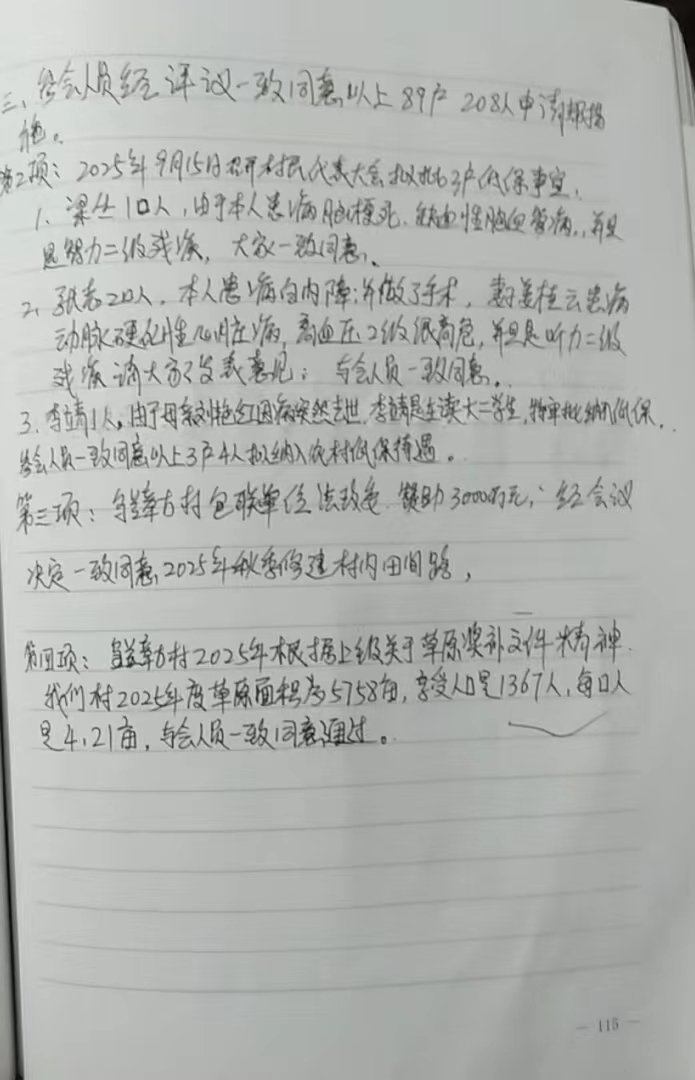 三、与会人员经评议一致同意以上89户208人申请帮扶措
施。
第2项：2025年9月15日召开村民代表大会拟批3户低保事宜，
1、梁丛1口人，由于本人患病脑梗死、缺血性脑血管病，并且
是智力二级残疾，大家一致同意、
2、张志2口人，本人患病白内障；并做了手术，妻姜桂云患病
动脉硬化性心脏病，高血压2级很高危，并且是听力二级
残疾请大家发表意见；与会人员一致同意。
3、李靖1人，由于母亲刘艳红因病突然去世，李靖是在读大二学生，特审批纳入低保，
与会人员一致同意以上3户4人拟纳入农村低保待遇。
第三项：方村包联单位法政委 赞助3000万元，经会议
决定一致同意2025年秋季修建村内田间路，
第四项：方村2025年根据上级关于草原奖补文件精神
我们村2025年度草原面积为5758亩，享受人口是1367人，每口人
是4.21亩，与会人员一致同意通过。
— 115 —